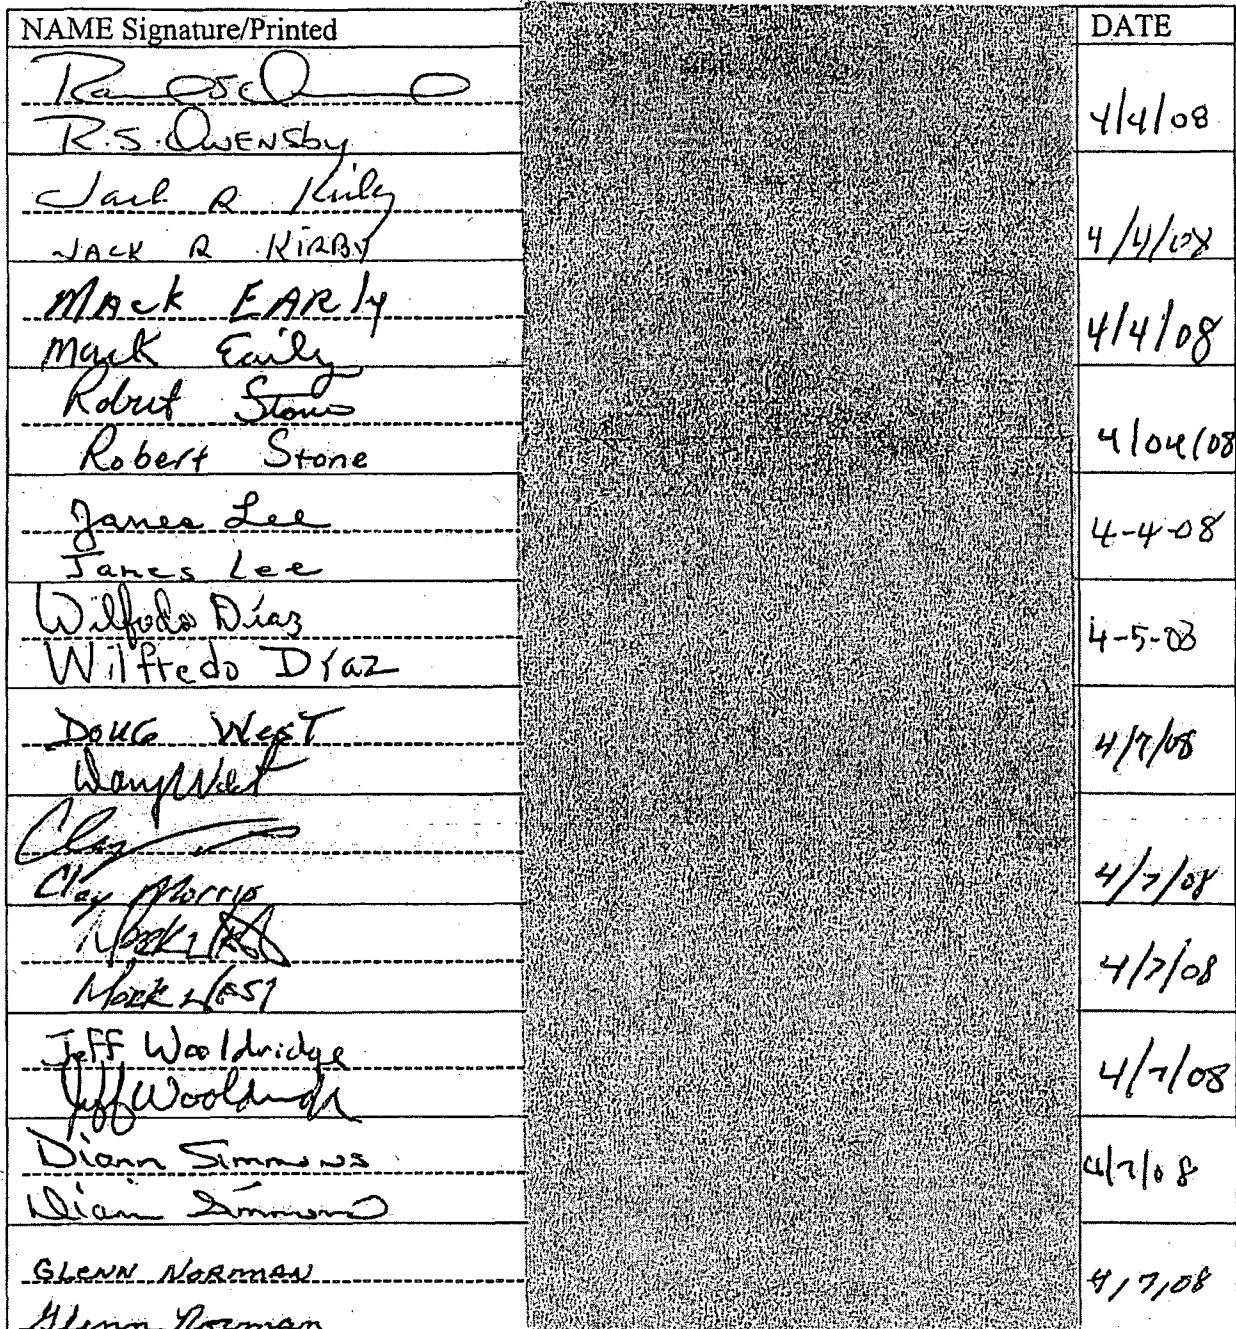 NAME Signature/Printed DATE
R.S. Owensby 4/4/08
Jack R Kirby
JACK R KIRBY 4/4/08
MAck EARly
Mack Early 4/4/08
Robert Stone
Robert Stone 4/04/08
James Lee
James Lee 4-4-08
Wilfredo Diaz
Wilfredo Diaz 4-5-08
Doug West
Doug West 4/7/08
Clay
Clay Morris 4/7/08
Mark West
Mark West 4/7/08
Jeff Wooldridge
Jeff Wooldridge 4/7/08
Diann Simmons
Diann Simmons 4/7/08
GLENN NORMAN
Glenn Norman 4/7/08